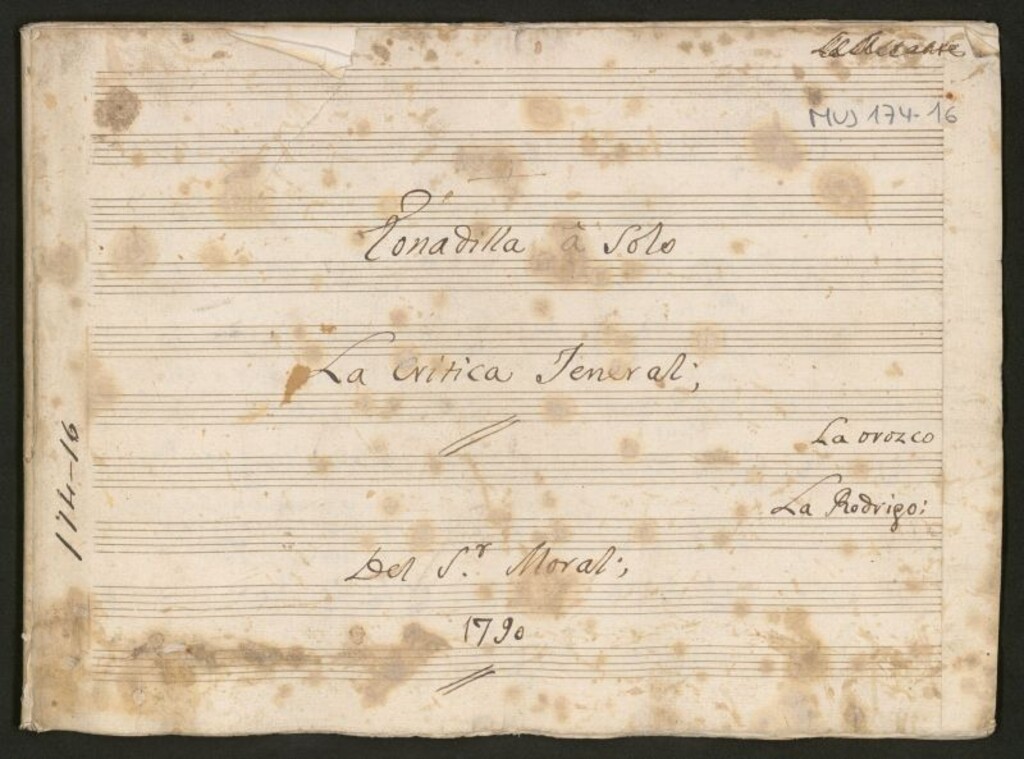 MUS 174-16
Tonadilla â Solo
La Critica Jeneral;
La orozco
La Rodrigo:
Del S.r Moral;
1790
174-16